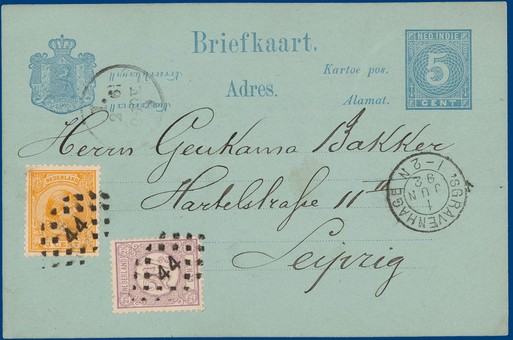 NED-INDIE
5
CENT
Briefkaart.
Kartoe pos.
Adres.
Alamat.
Herrn Geukama Bakker
Hartelstraße 11 II
Leipzig
'SGRAVENHAGE
1-2N
1
JUN
92
NEDERLAND
44
NEDERLAND
44